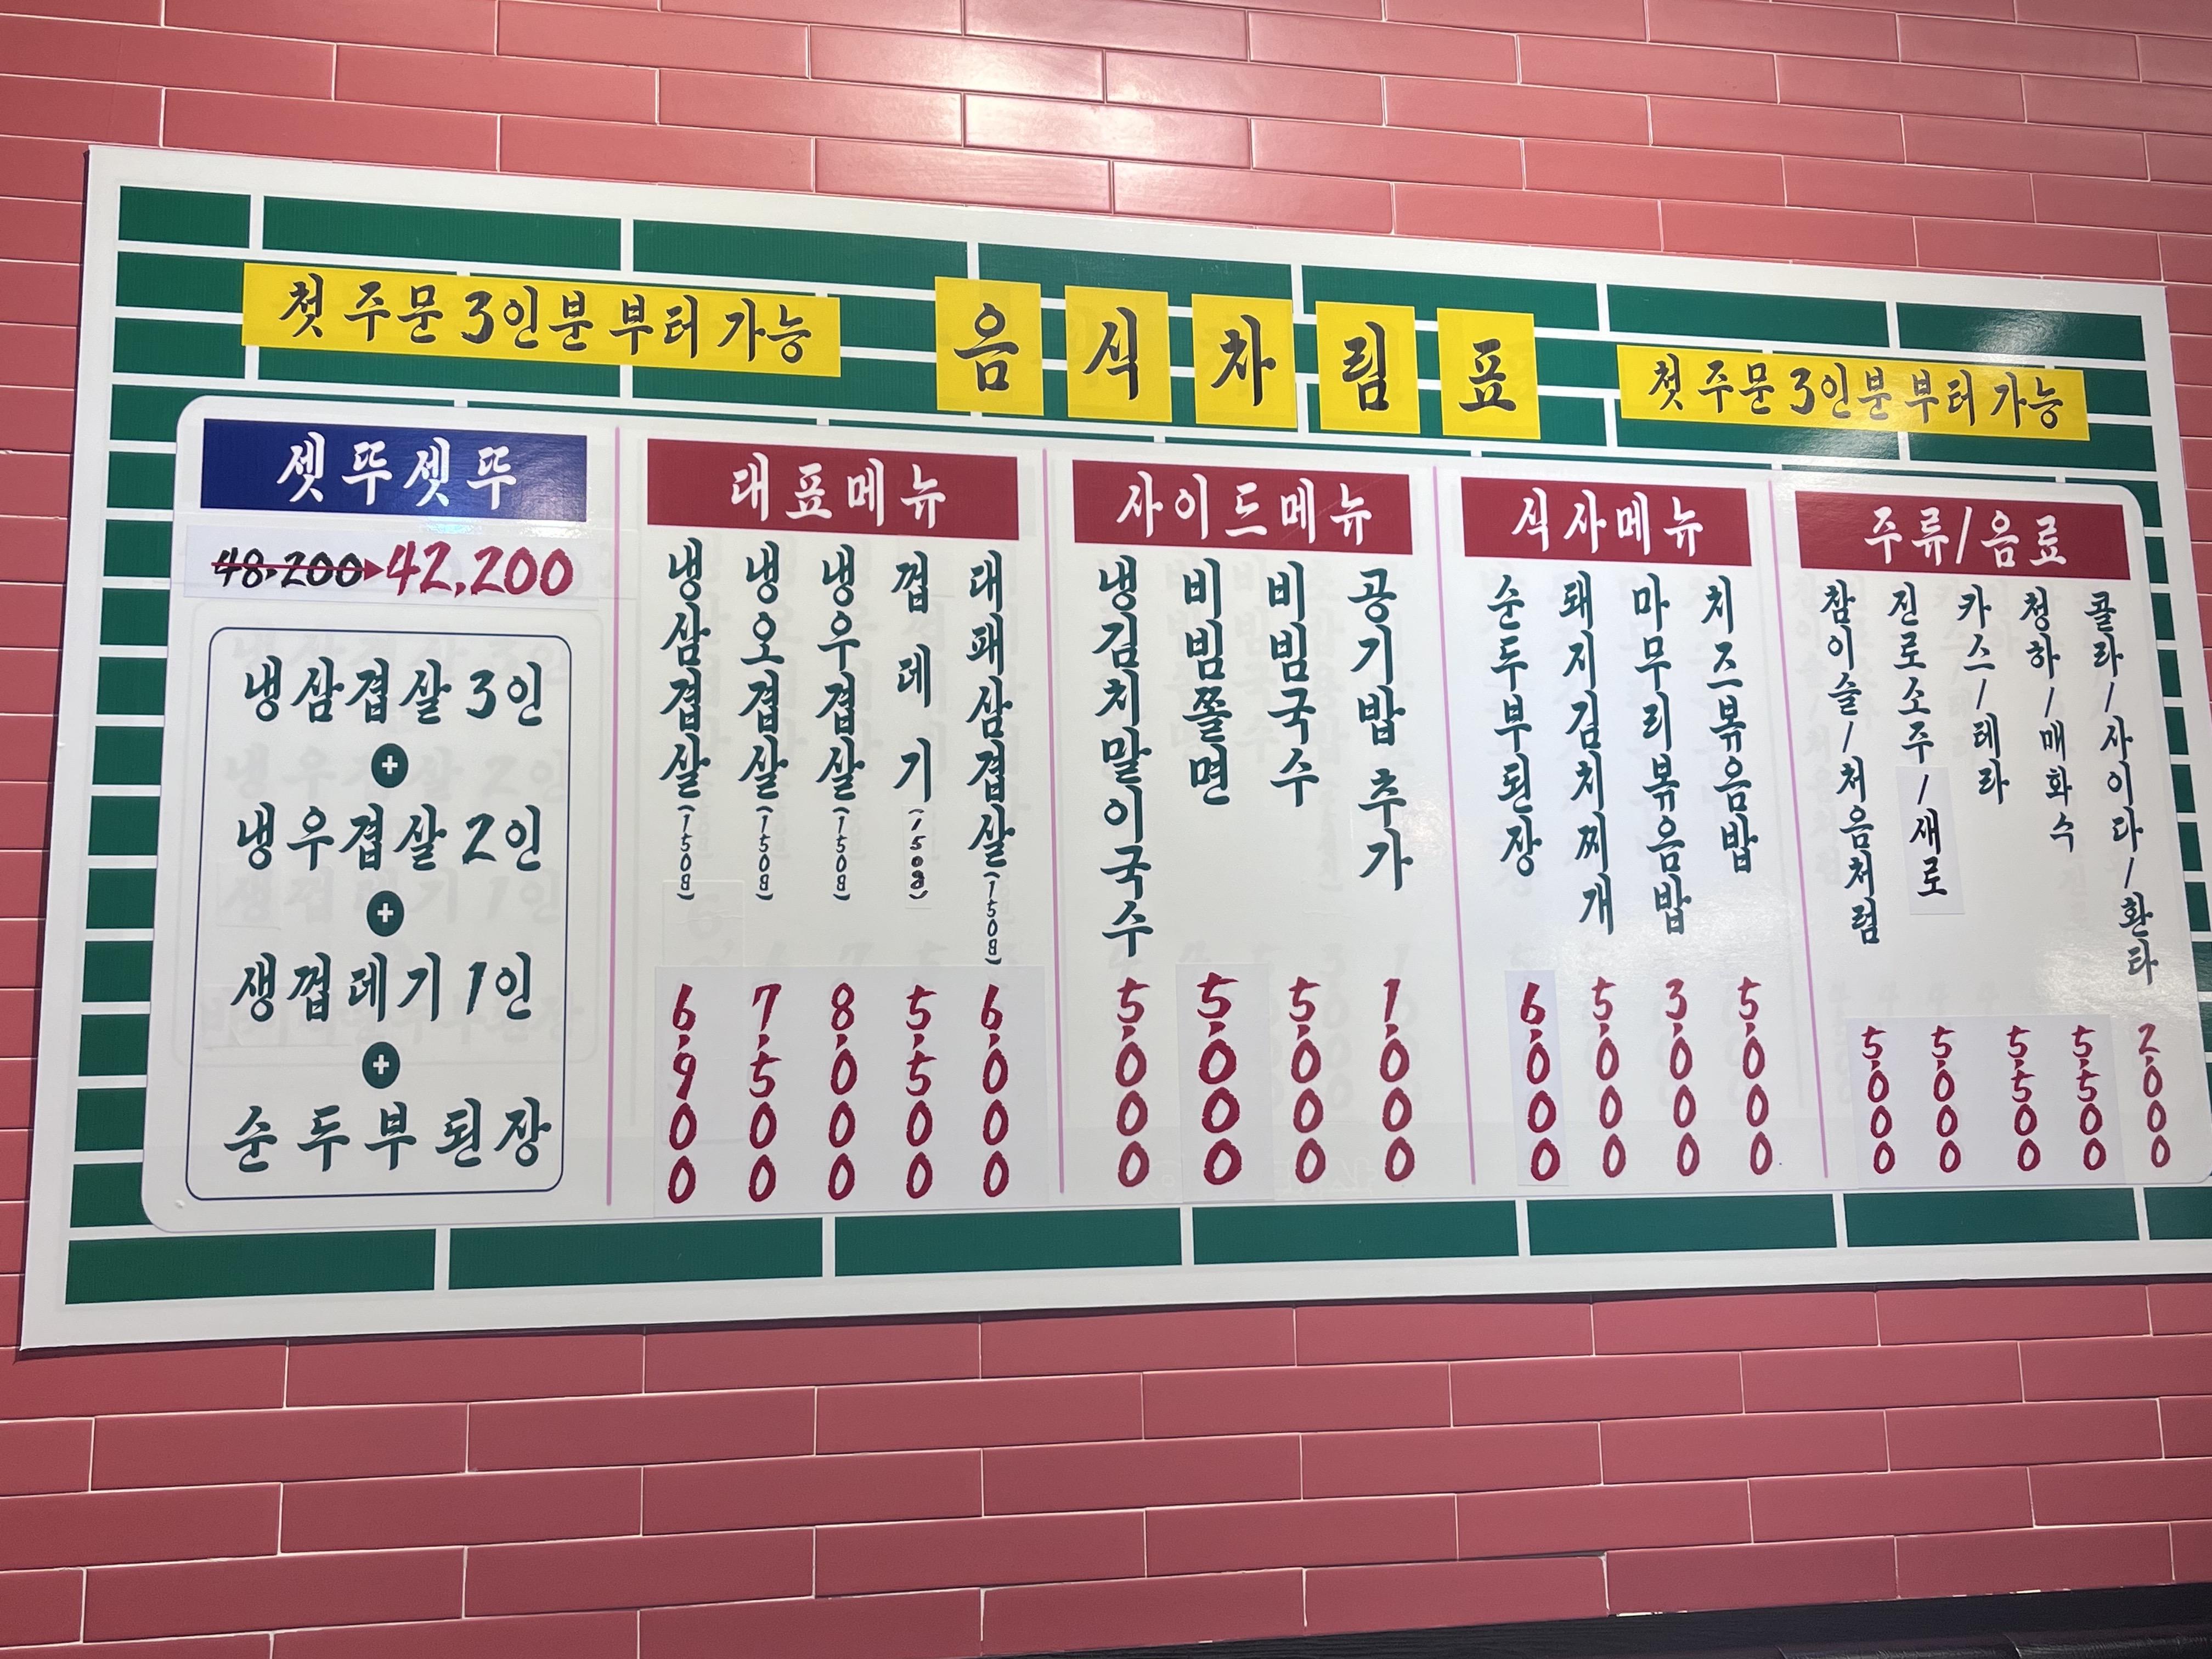 첫 주문 3인분 부터 가능
음식차림표
첫 주문 3인분 부터 가능
셋뚜셋뚜
48,200▶42,200
냉삼겹살 3인
+
냉우겹살 2인
+
생껍데기 1인
+
순두부된장
대표메뉴
냉삼겹살(150g) 6,900
냉오겹살(150g) 7,500
냉우겹살(150g) 8,000
껍데기(150g) 5,500
대패삼겹살(150g) 6,000
사이드메뉴
냉김치말이국수 5,000
비빔쫄면 5,000
비빔국수 5,000
공기밥 추가 1,000
식사메뉴
순두부된장 6,000
돼지김치찌개 5,000
마무리볶음밥 3,000
치즈볶음밥 5,000
주류/음료
참이슬/처음처럼 5,000
진로소주/새로 5,000
카스/테라 5,500
청하/매화수 5,500
콜라/사이다/환타 2,000